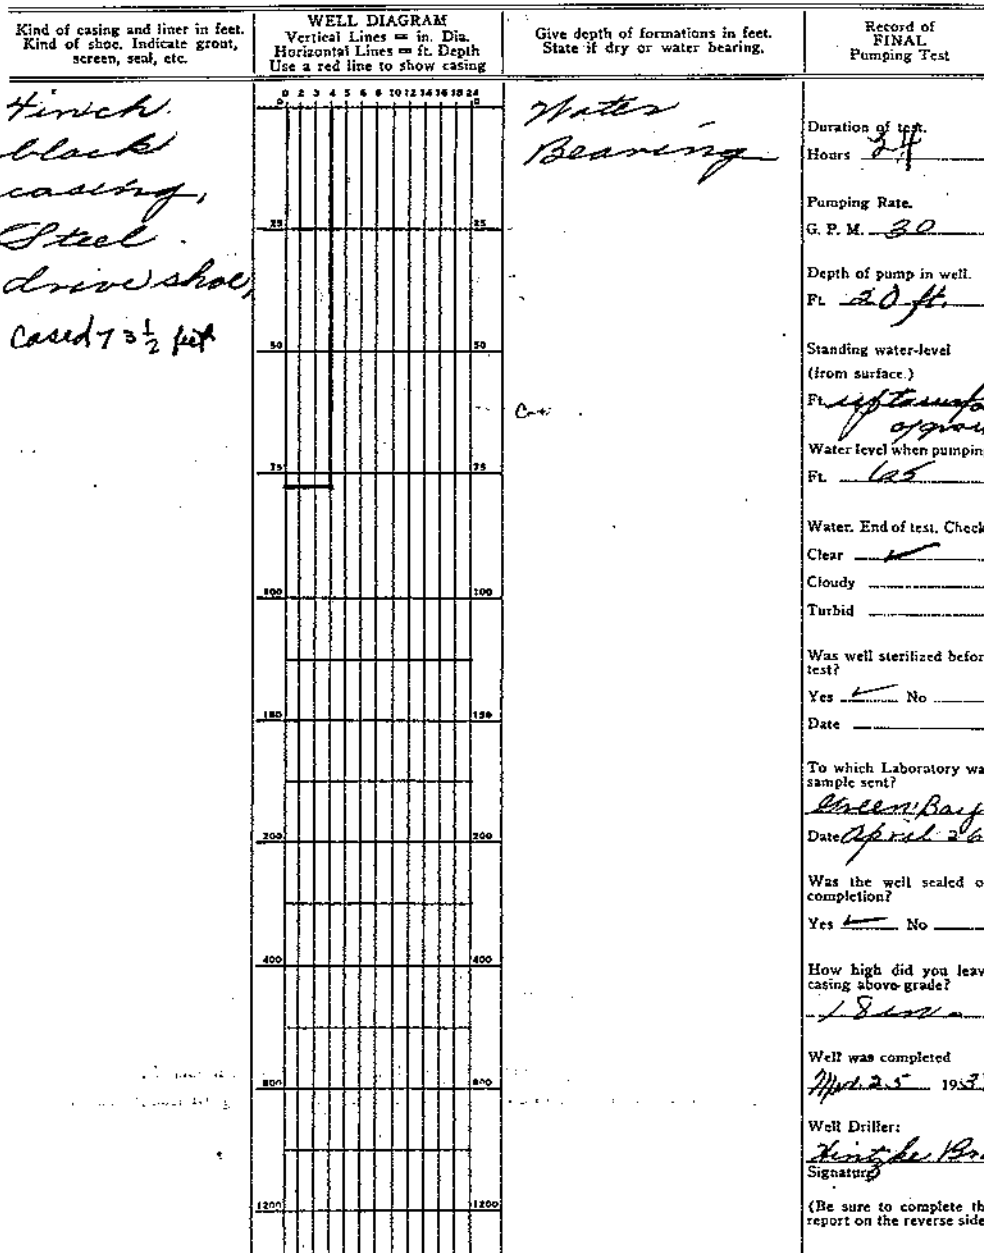 Kind of casing and liner in feet.
Kind of shoe. Indicate grout,
screen, seal, etc.
4 inch
black
casing,
Steel
drive shoe,
Cased 73 1/2 feet
WELL DIAGRAM
Vertical Lines = in. Dia.
Horizontal Lines = ft. Depth
Use a red line to show casing
0 2 3 4 5 6 8 10 12 14 16 18 24
0 0
25 25
50 50
75 75
100 100
150 150
200 200
400 400
800 800
1200 1200
Give depth of formations in feet.
State if dry or water bearing.
Water
Bearing
Record of
FINAL
Pumping Test
Duration of test.
Hours 24
Pumping Rate.
G. P. M. 30
Depth of pump in well.
Ft. 20 ft.
Standing water-level
(from surface.)
Ft.
Water level when pumpin
Ft.
Water. End of test. Check
Clear ✓
Cloudy
Turbid
Was well sterilized befor
test?
Yes ✓ No
Date
To which Laboratory wa
sample sent?
Green Bay
Date April 26
Was the well sealed o
completion?
Yes ✓ No
How high did you leav
casing above grade?
18 in.
Well was completed
25 193
Well Driller:
Signature
(Be sure to complete th
report on the reverse side